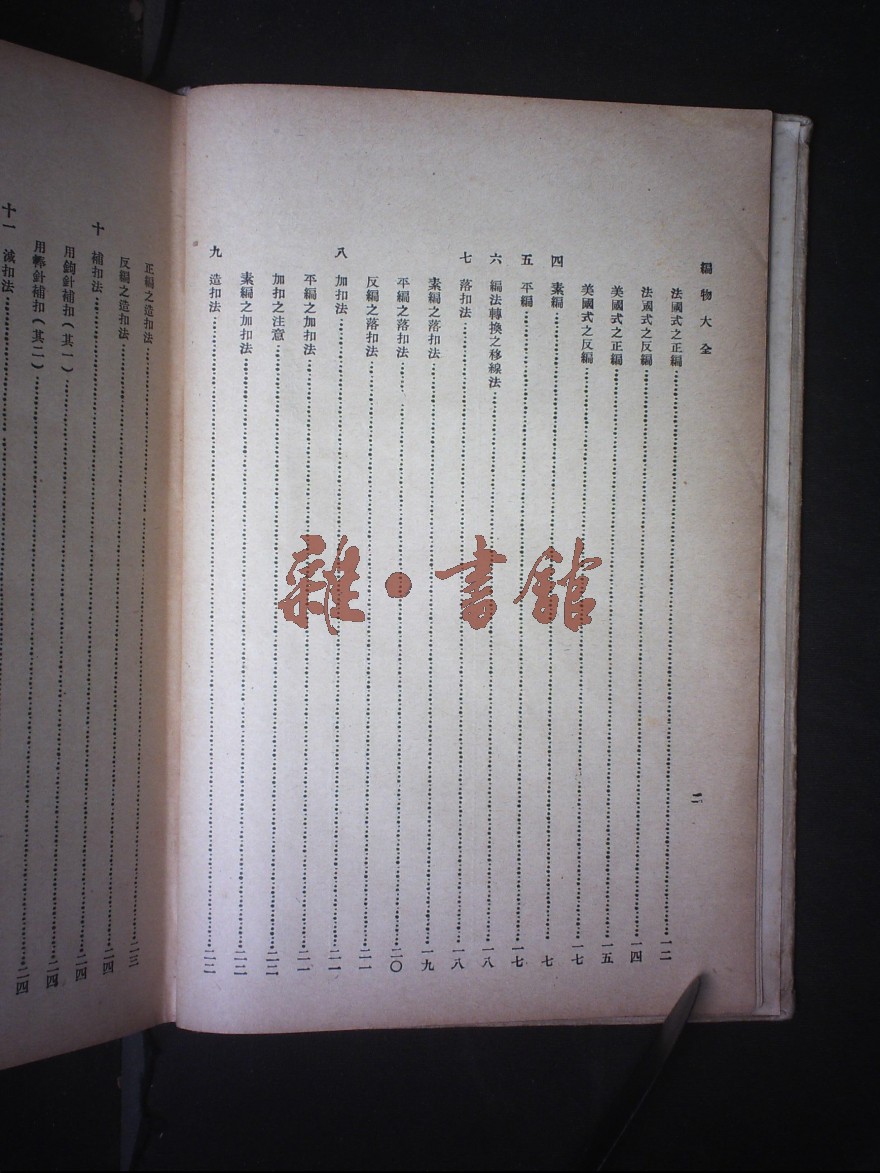 編物大全
二
法國式之正編……一二
法國式之反編……一四
美國式之正編……一五
美國式之反編……一七
四 素編……一七
五 平編……一七
六 編法轉換之移線法……一八
七 落扣法……一八
素編之落扣法……一九
平編之落扣法……二〇
反編之落扣法……二一
八 加扣法……二一
平編之加扣法……二一
加扣之注意……二二
素編之加扣法……二二
九 造扣法……二二
正編之造扣法……二三
反編之造扣法……二四
十 補扣法……二四
用鈎針補扣(其一)……二四
用棒針補扣(其二)……二四
十一 減扣法……二四
雜·書館